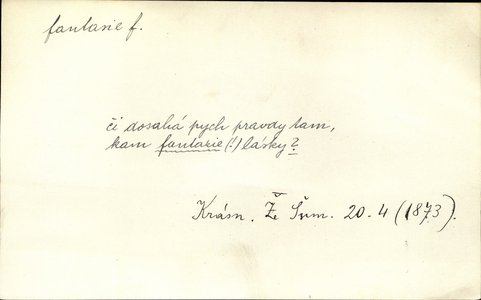 fantasie f.
či dosahá pych pravdy tam,
kam fantasie (!) lásky?
Krásn. Že Šum. 20-4 (1873).